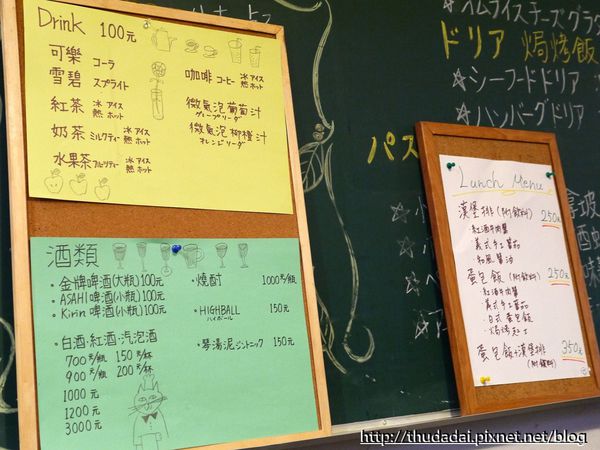 Drink 100元
可樂 コーラ
雪碧 スプライト
紅茶 冰 アイス
熱 ホット
奶茶 ミルクティー 冰 アイス
熱 ホット
水果茶 フルーツティー 冰 アイス
熱 ホット
咖啡 コーヒー 冰 アイス
熱 ホット
微氣泡葡萄汁
グレープソーダ
微氣泡柳橙汁
オレンジソーダ
酒類
・金牌啤酒(大瓶)100元
・ASAHI啤酒(小瓶)100元
・Kirin啤酒(小瓶)100元
・白酒・紅酒・汽泡酒
700元/瓶 150元/杯
900元/瓶 200元/杯
1000元
1200元
3000元
・燒酎 1000元/瓶
・HIGHBALL 150元
ハイボール
・琴湯泥 ジントニック 150元
オムライス チーズグラタ
ドリア 焗烤飯
☆シーフードドリア
☆ハンバーグドリア
パス
Lunch Menu
漢堡排(附飲料) 250元
・紅酒牛肉醬
・義式手工蕃茄
・和風醬油
蛋包飯(附飲料) 250元
・紅酒牛肉醬
・義式手工蕃茄
・日式蛋包飯
・焗烤起士
蛋包飯+漢堡排 350元
(附飲料)
http://thudadai.pixnet.net/blog